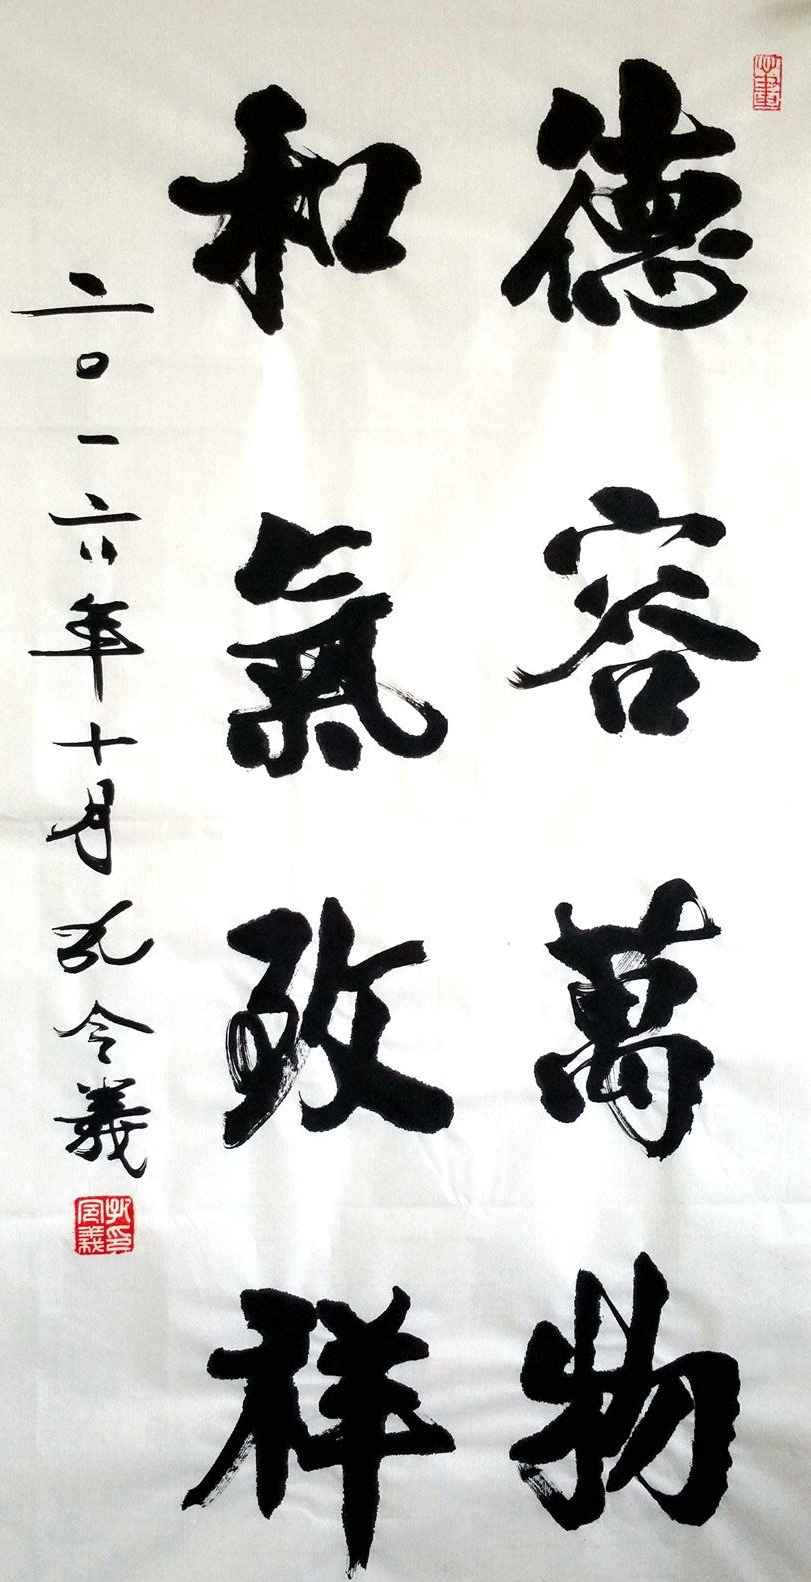 德容萬物
和氣致祥
二〇一六年十月孔令義
孔令義印